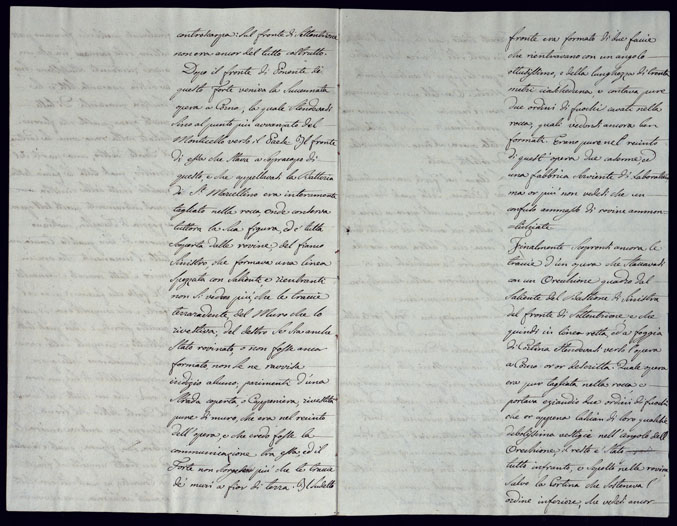 controscarpa. Sul fronte di Settentrione
non era ancor del tutto costrutto.
Dopo il fronte di Ponente di
questo Forte veniva la Succennata
opera a Corno, la quale stendevasi
sino al punto più avanzato del
Monticello verso il Paese. Il fronte
di essa che stava a Soprasapo di
questo, e che appellavasi la Batteria
di S.t Marcellino era interamente
tagliato nella rocca onde conserva
tuttora la sua figura, ed è tutta
sgombra dalle rovine; del fianco
Sinistro che formava una linea
spezzata con saliente e rientrante
non si vedeva più che le traccie
terrarasente, del Muro che lo
rivestiva; del destro sia che anche
Stato rovinato, o non fosse anco
formato, non se ne ravvisa
indizio alcuno, parimente d'una
Strada coperta o Capponiera, rivestita
pure di muro, che era nel recinto
dell'opera, e che credo fosse la
communicazione tra essa ed il
Forte non scorgesi più che le traccie
de' muri a fior di terra. Il sudetto
fronte era formato di due faccie
che rientravano con un angolo
ottusissimo, e della lunghezza di trenta
metri ciascheduna, e contava pure
due ordini di fuochi cavati nella
rocca, quali vedonsi ancora ben
formati. Erano pure nel recinto
di quest'opera due caserme, ed
una fabbrica serviente di Laboratorio
ma or più non vedesi che un
confuso ammasso di rovine ammon
ticchiate.
Finalmente scopronsi ancora le
traccie d'un opera che staccavasi
con un Orecchione quadro dal
Saliente del Bastione di sinistra
del fronte di Settentrione e che
quindi in linea retta, ed a foggia
di Cortina stendevasi verso l'opera
a Corno or or descritta. Quale opera
era pur tagliata nella rocca e
portava eziandio due ordini di fuochi
che or appena lascian di loro qualche
debolissima vestigie nell'angolo dell'
Orecchione, il resto è stato
tutto infranto, e sepolto nella rovina
salvo la Cortina che sosteneva l'
ordine inferiore, che vedesi ancor